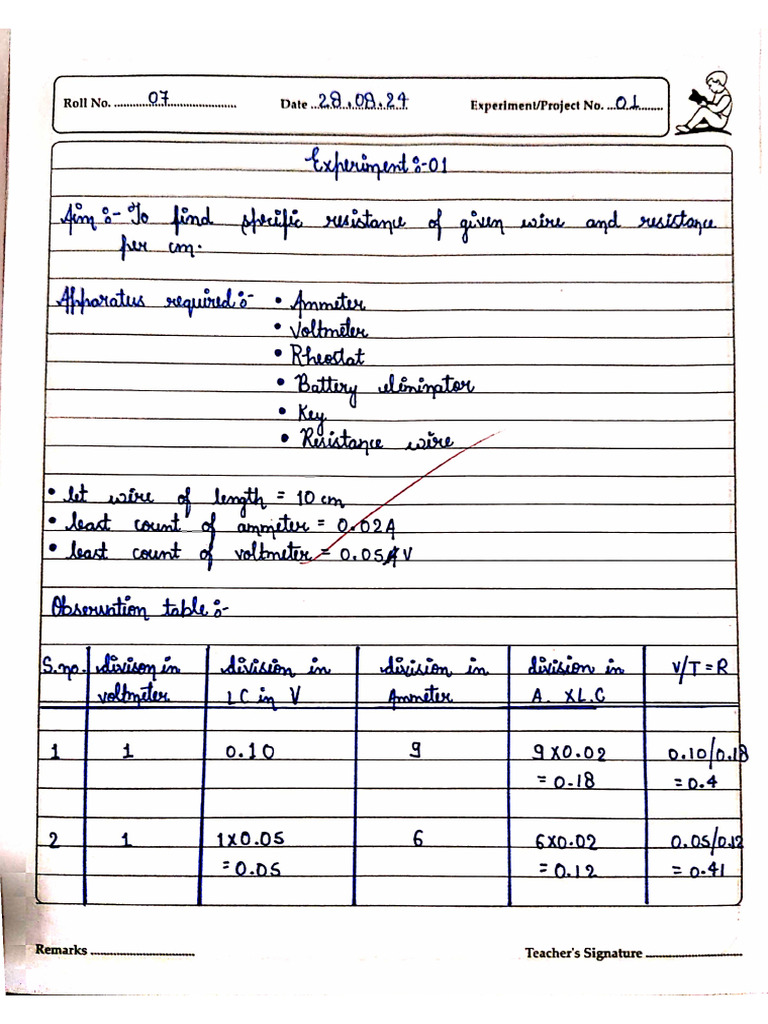 Roll No. 07 Date 28.08.24 Experiment/Project No. 01
Experiment:-01
Aim :- To find specific resistance of given wire and resistance
per cm.
Apparatus required:- • Ammeter
• Voltmeter
• Rheostat
• Battery eliminator
• Key
• Resistance wire
• let wire of length = 10 cm
• least count of ammeter = 0.02A
• least count of voltmeter = 0.05 V
Observation table :-
S.no. divison in division in division in division in V/I = R
voltmeter LC in V Ammeter A. X L.C
1 1 0.10 9 9 X 0.02 0.10/0.18
= 0.18 = 0.4
2 1 1X0.05 6 6X0.02 0.05/0.12
= 0.05 = 0.12 = 0.41
Remarks Teacher's Signature